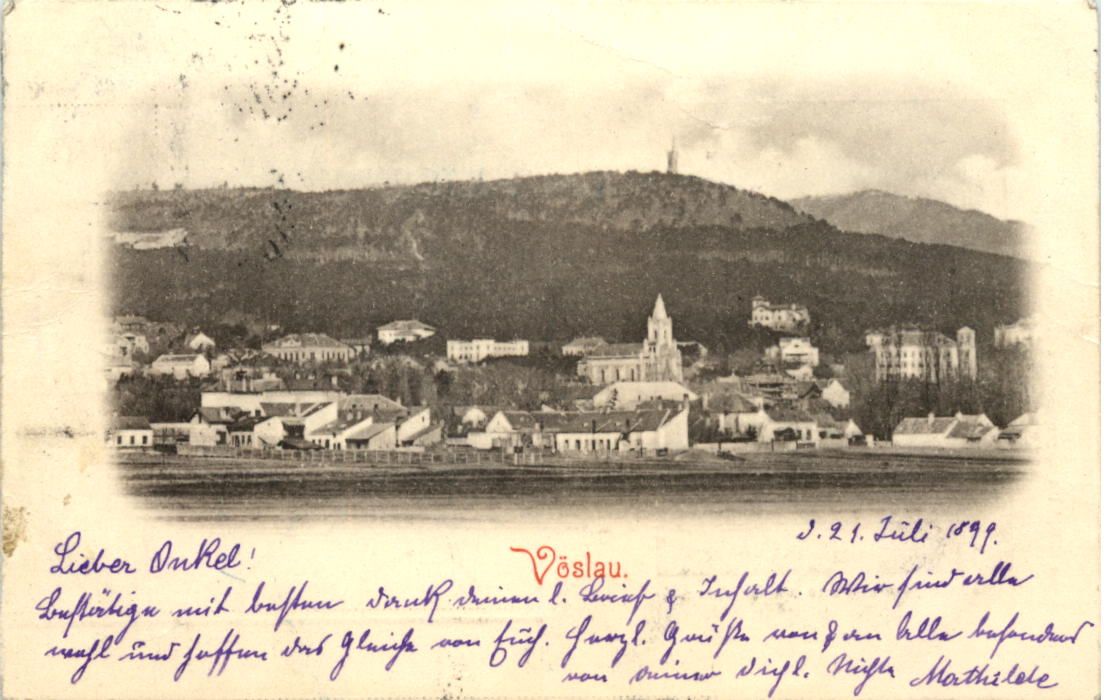 d. 21. Juli 1899.
Lieber Onkel!
Vöslau.
Bestätige mit besten Dank deinen l. Brief & Inhalt. Wir sind alle
wohl und hoffen das Gleiche von Euch. Herzl. Grüße von & an Alle besonders
von deiner dichl. Nichte Mathilde